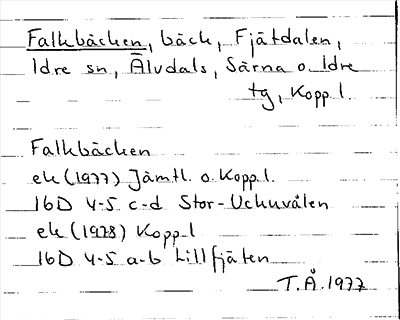 Falkbäcken, bäck, Fjätdalen,
Idre sn, Älvdals, Särna o. Idre
tg, Kopp l.
Falkbäcken
ek (1977) Jämtl. o. Kopp l.
16D 4-5 c-d Stor-Uckuvålen
ek (1978) Kopp l
16D 4-5 a-b Lillfjäten
T. Å. 1977